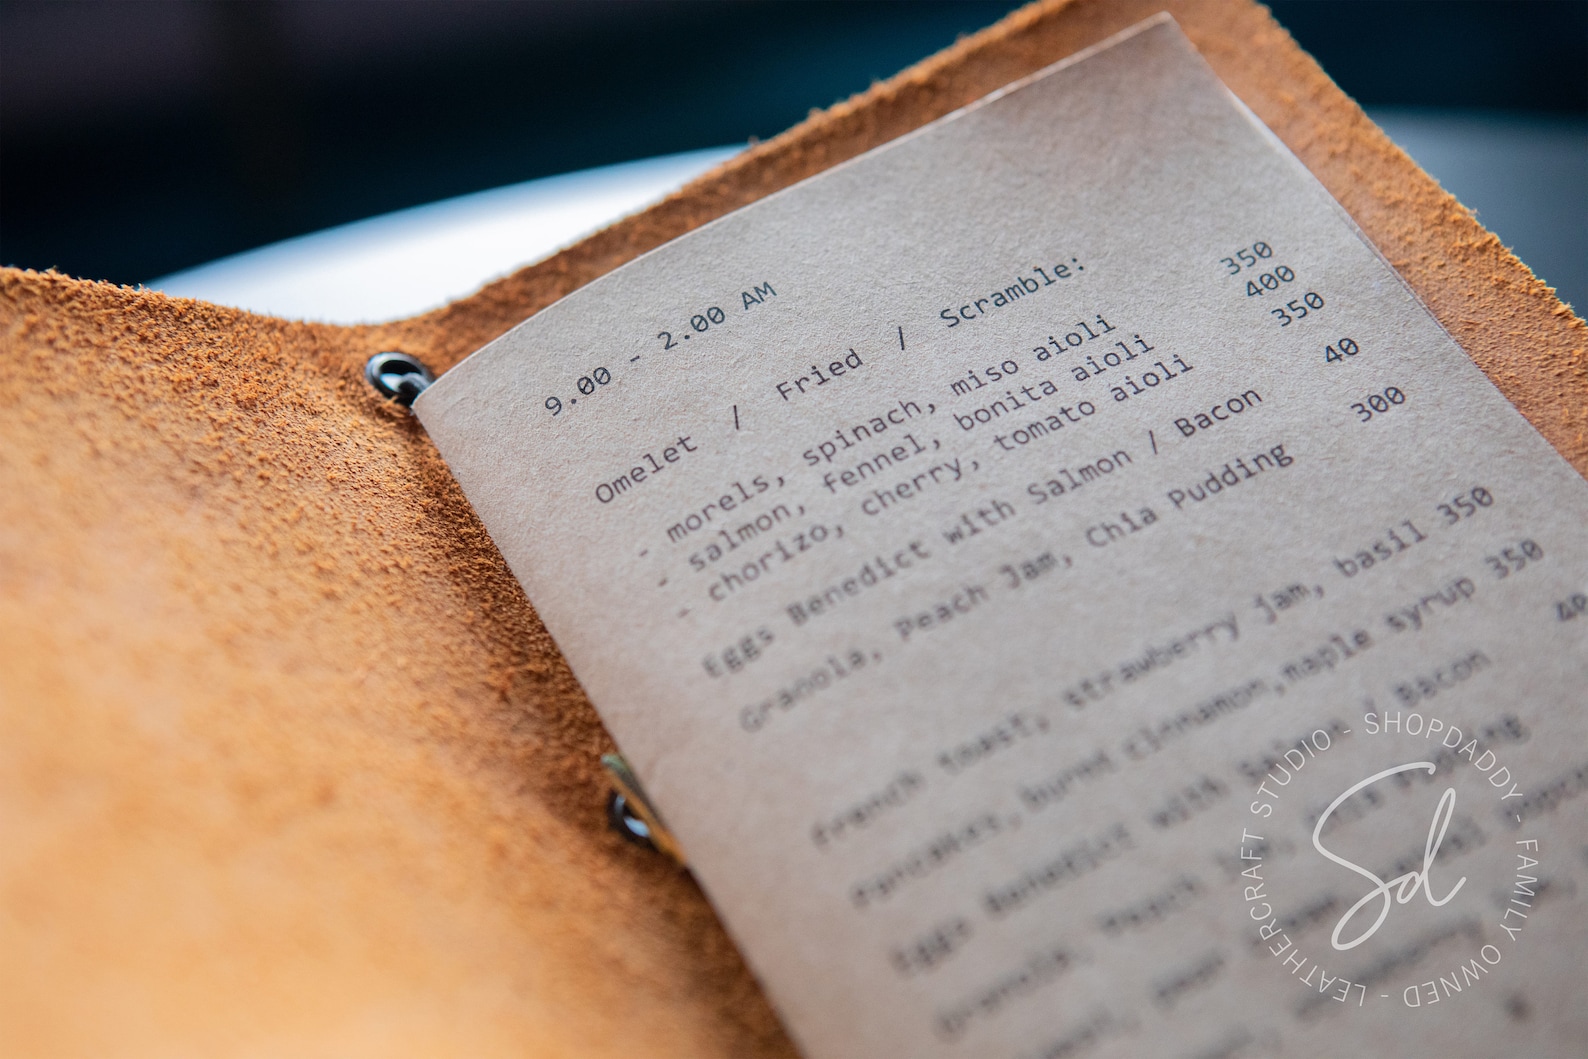 9.00 - 2.00 AM
Omelet / Fried / Scramble:
- morels, spinach, miso aioli 350
- salmon, fennel, bonita aioli 400
- chorizo, cherry, tomato aioli 350
Eggs Benedict with Salmon / Bacon 40
Granola, Peach Jam, Chia Pudding 300
French toast, strawberry jam, basil 350
Pancakes, burned cinnamon,maple syrup 350
Eggs Benedict with Salmon / Bacon
Granola, Peach
SHOPDADDY - FAMILY OWNED - LEATHERCRAFT STUDIO -
Sd